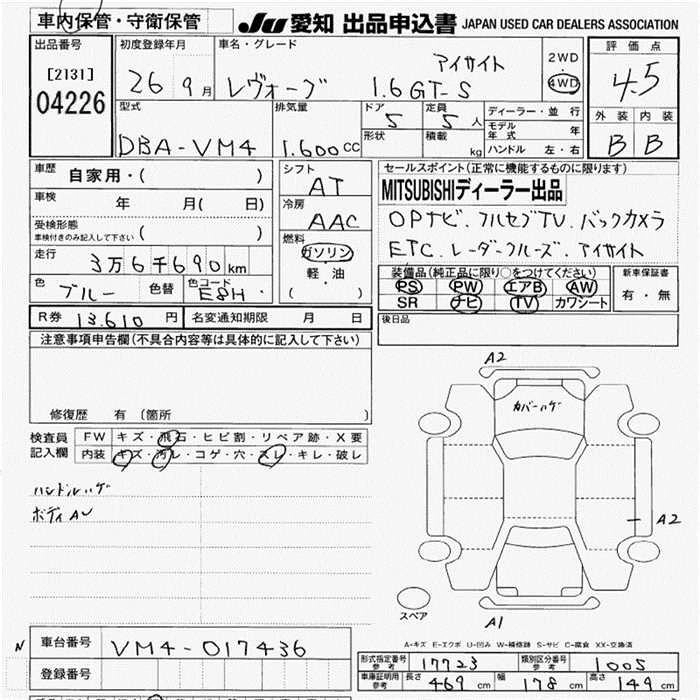 車内保管・守衛保管
JU 愛知 出品申込書 JAPAN USED CAR DEALERS ASSOCIATION
出品番号
[2131]
04226
初度登録年月
26 9月
車名・グレード
レヴォーグ 1.6 GT-S アイサイト
2WD
4WD
評価点
4.5
外装 内装
B B
型式
DBA-VM4
排気量
1.600 CC
ドア
5
形状
定員
5人
積載
kg
ディーラー・並行
モデル年式 年
ハンドル 左・右
車歴 自家用・( )
車検 年 月( 日)
受検形態
車検付きのみ記入して下さい ( )
走行 3万6千690km
色 ブルー 色替 色コード E8H
シフト
AT
冷房
AAC
燃料
ガソリン
軽・油
( )
セールスポイント(正常に機能するものに限ります)
MITSUBISHIディーラー出品
OPナビ. フルセグTV. バックカメラ
ETC. レーダークルーズ. アイサイト
装備品(純正品に限り○をつけてください)
PS PW エアB AW
SR ナビ TV カワシート
新車保証書
有・無
R券 13.610 円 名変通知期限 月 日
後日品
注意事項申告欄(不具合内容等は具体的に記入して下さい)
修復歴 有(箇所 )
検査員記入欄
FW キズ・飛石・ヒビ割・リペア跡・X要
内装 キズ・汚レ・コゲ・穴・スレ・キレ・破レ
ハンドルハゲ
ボディAU
A2
カバーハゲ
A2
スペア
A1
A-キズ E-エクボ U-凹み W-補修跡 S-サビ C-腐食 XX-交換済
N
車台番号 VM4-017436
登録番号
形式指定番号 参考 17723 類別区分番号 参考 1005
車庫証明用 参考 長さ 469 cm 幅 178 cm 高さ 149 cm